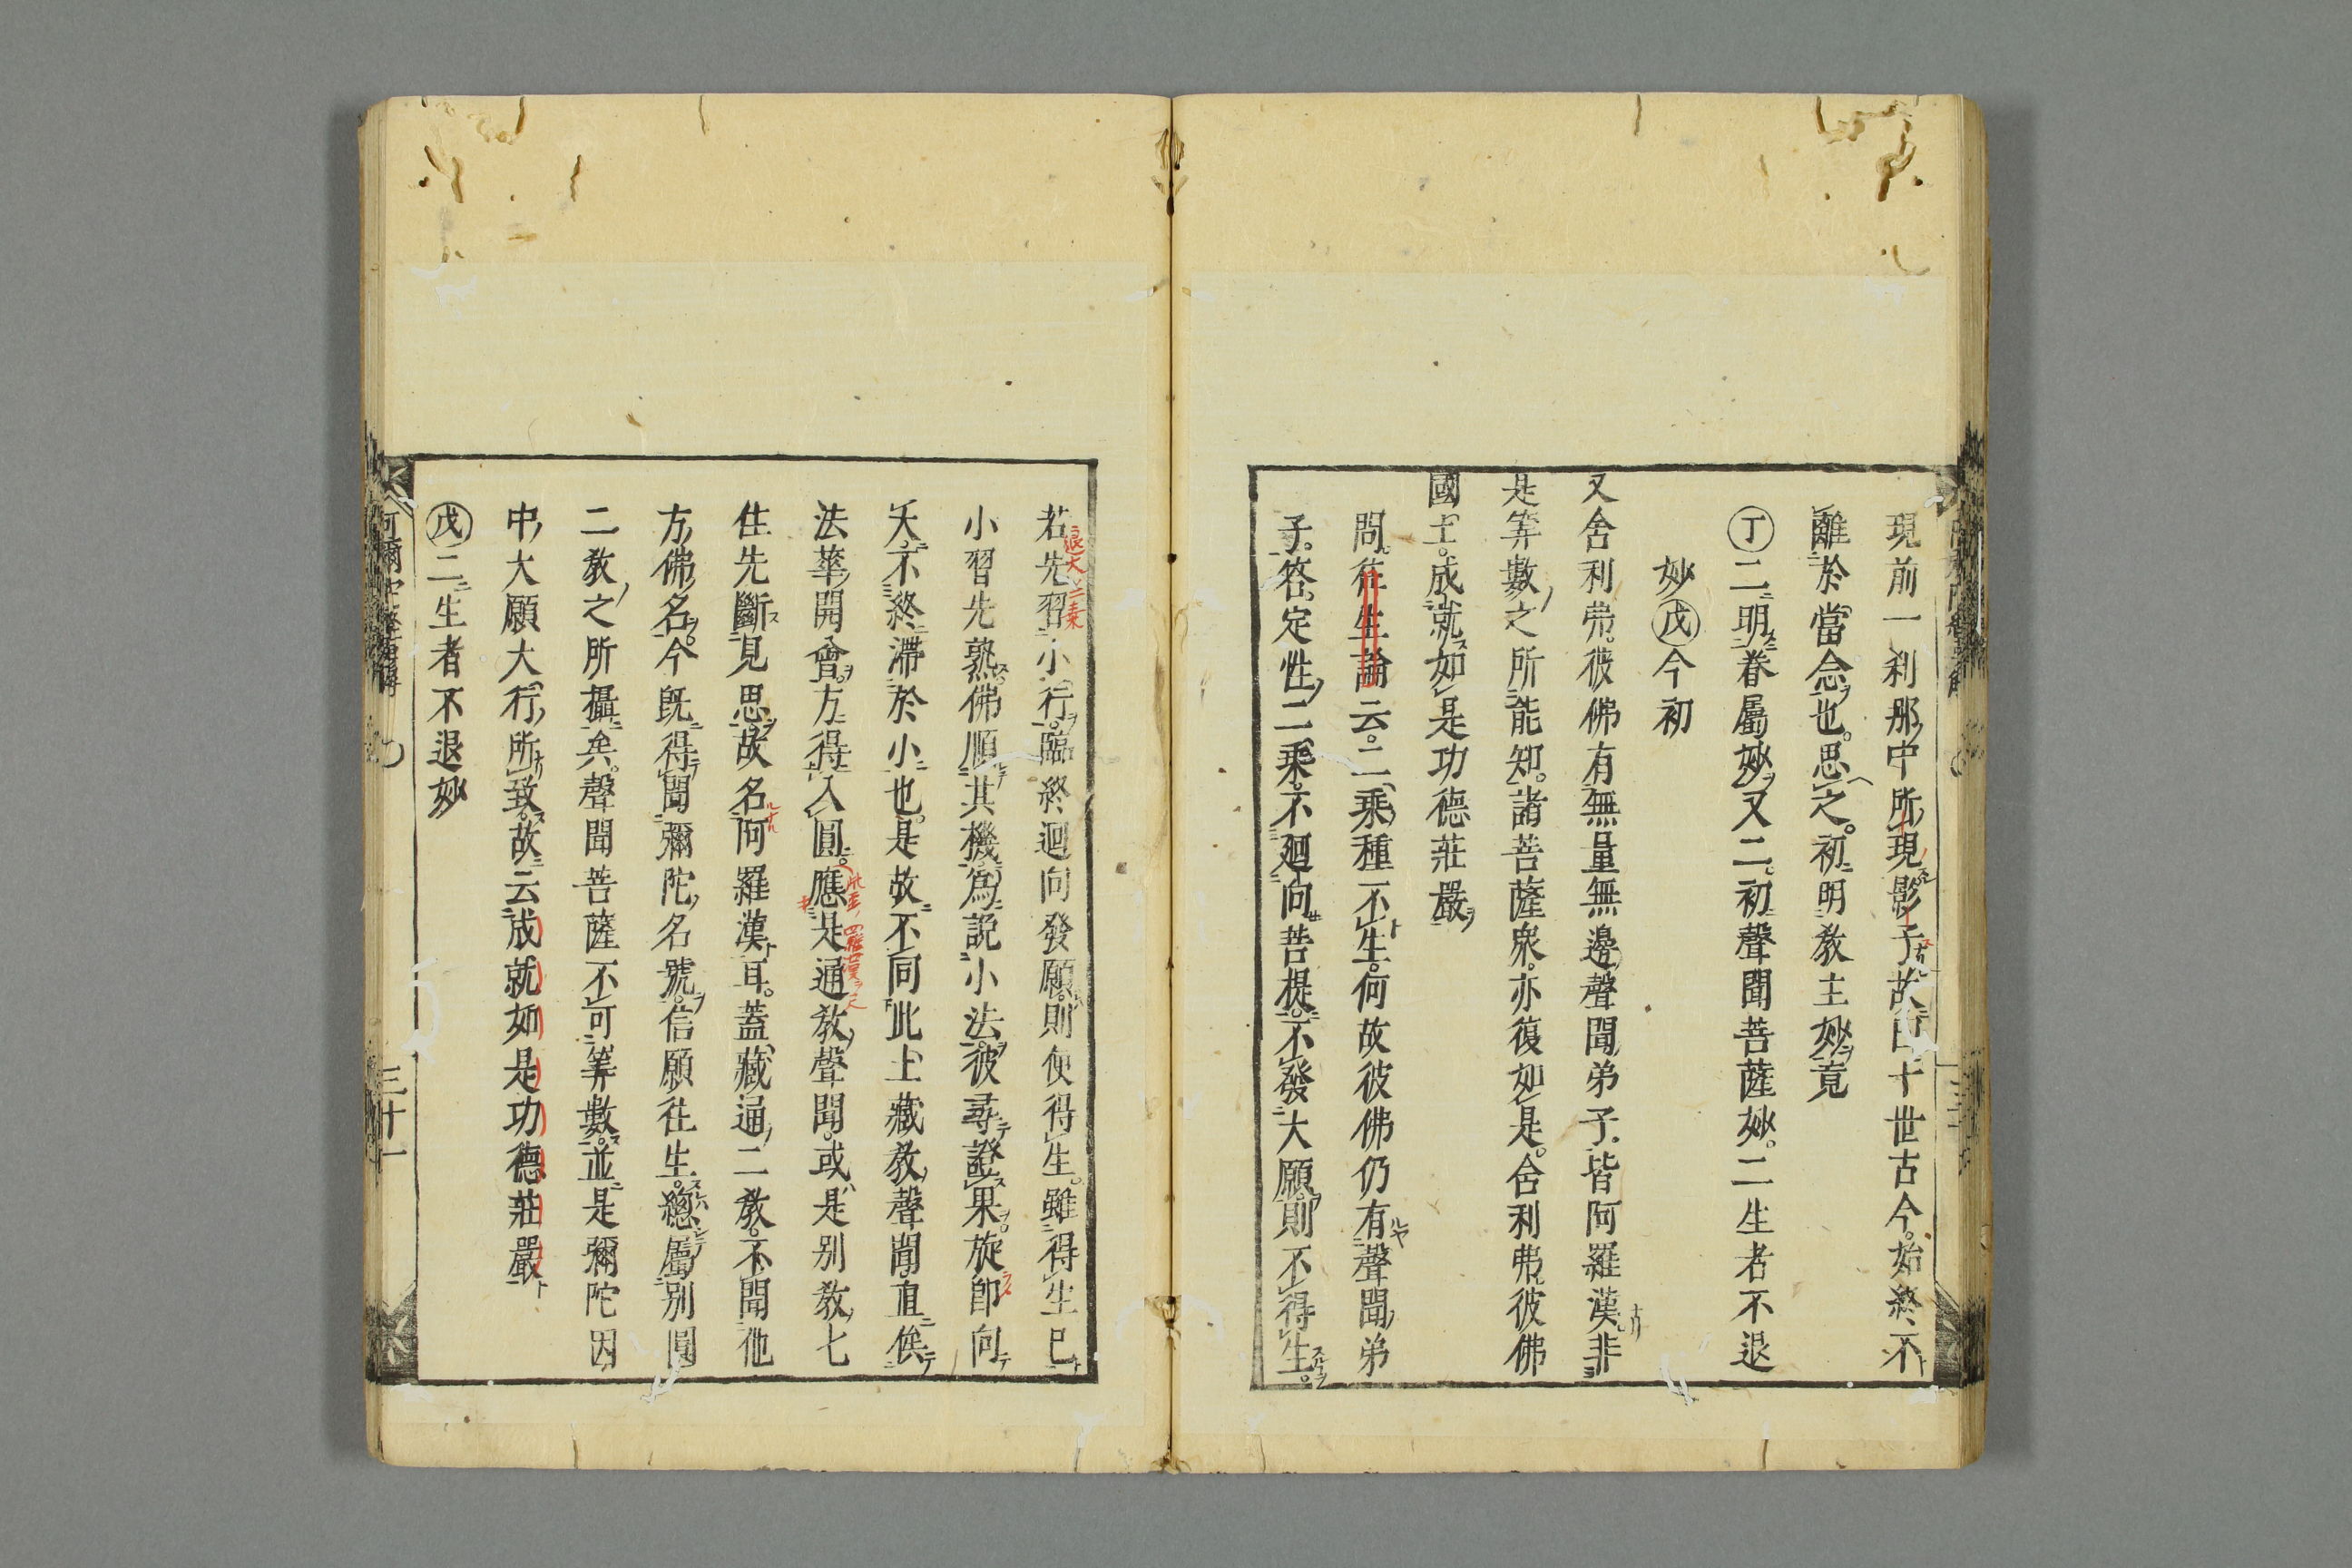 現前一刹那中所現影子故曰十世古今始終不
離於當念也。思之。初明教主妙竟
丁二明眷屬妙又二初聲聞菩薩妙。二生者不退
妙戊今初
又舍利弗。彼佛有無量無邊聲聞弟子。皆阿羅漢非
是筭數之所能知。諸菩薩衆。亦復如是。舍利弗彼佛
國土。成就如是功德莊嚴
問。徃生論云。二乘種不生。何故彼佛仍有聲聞弟
子。答。定性二乘。不廻向菩提。不發大願。則不得生。
若先習小行。臨終迴向發願。則便得生。雖得生已
小習先熟。佛順其機。爲説小法。彼尋證果。旋卽向
大。不終滯於小也。是故不同此土藏教聲聞。直俟
法華開會。方得入圓。應是通教聲聞。或是别教七
住先斷見思。故名阿羅漢耳。蓋藏通二教。不聞他
方佛名。今既得聞彌陀名號。信願往生。總屬别圓
二教之所攝矣。聲聞菩薩不可筭數。並是彌陀因
中大願大行所致。故云成就如是功德莊嚴
戊二生者不退妙
三十一